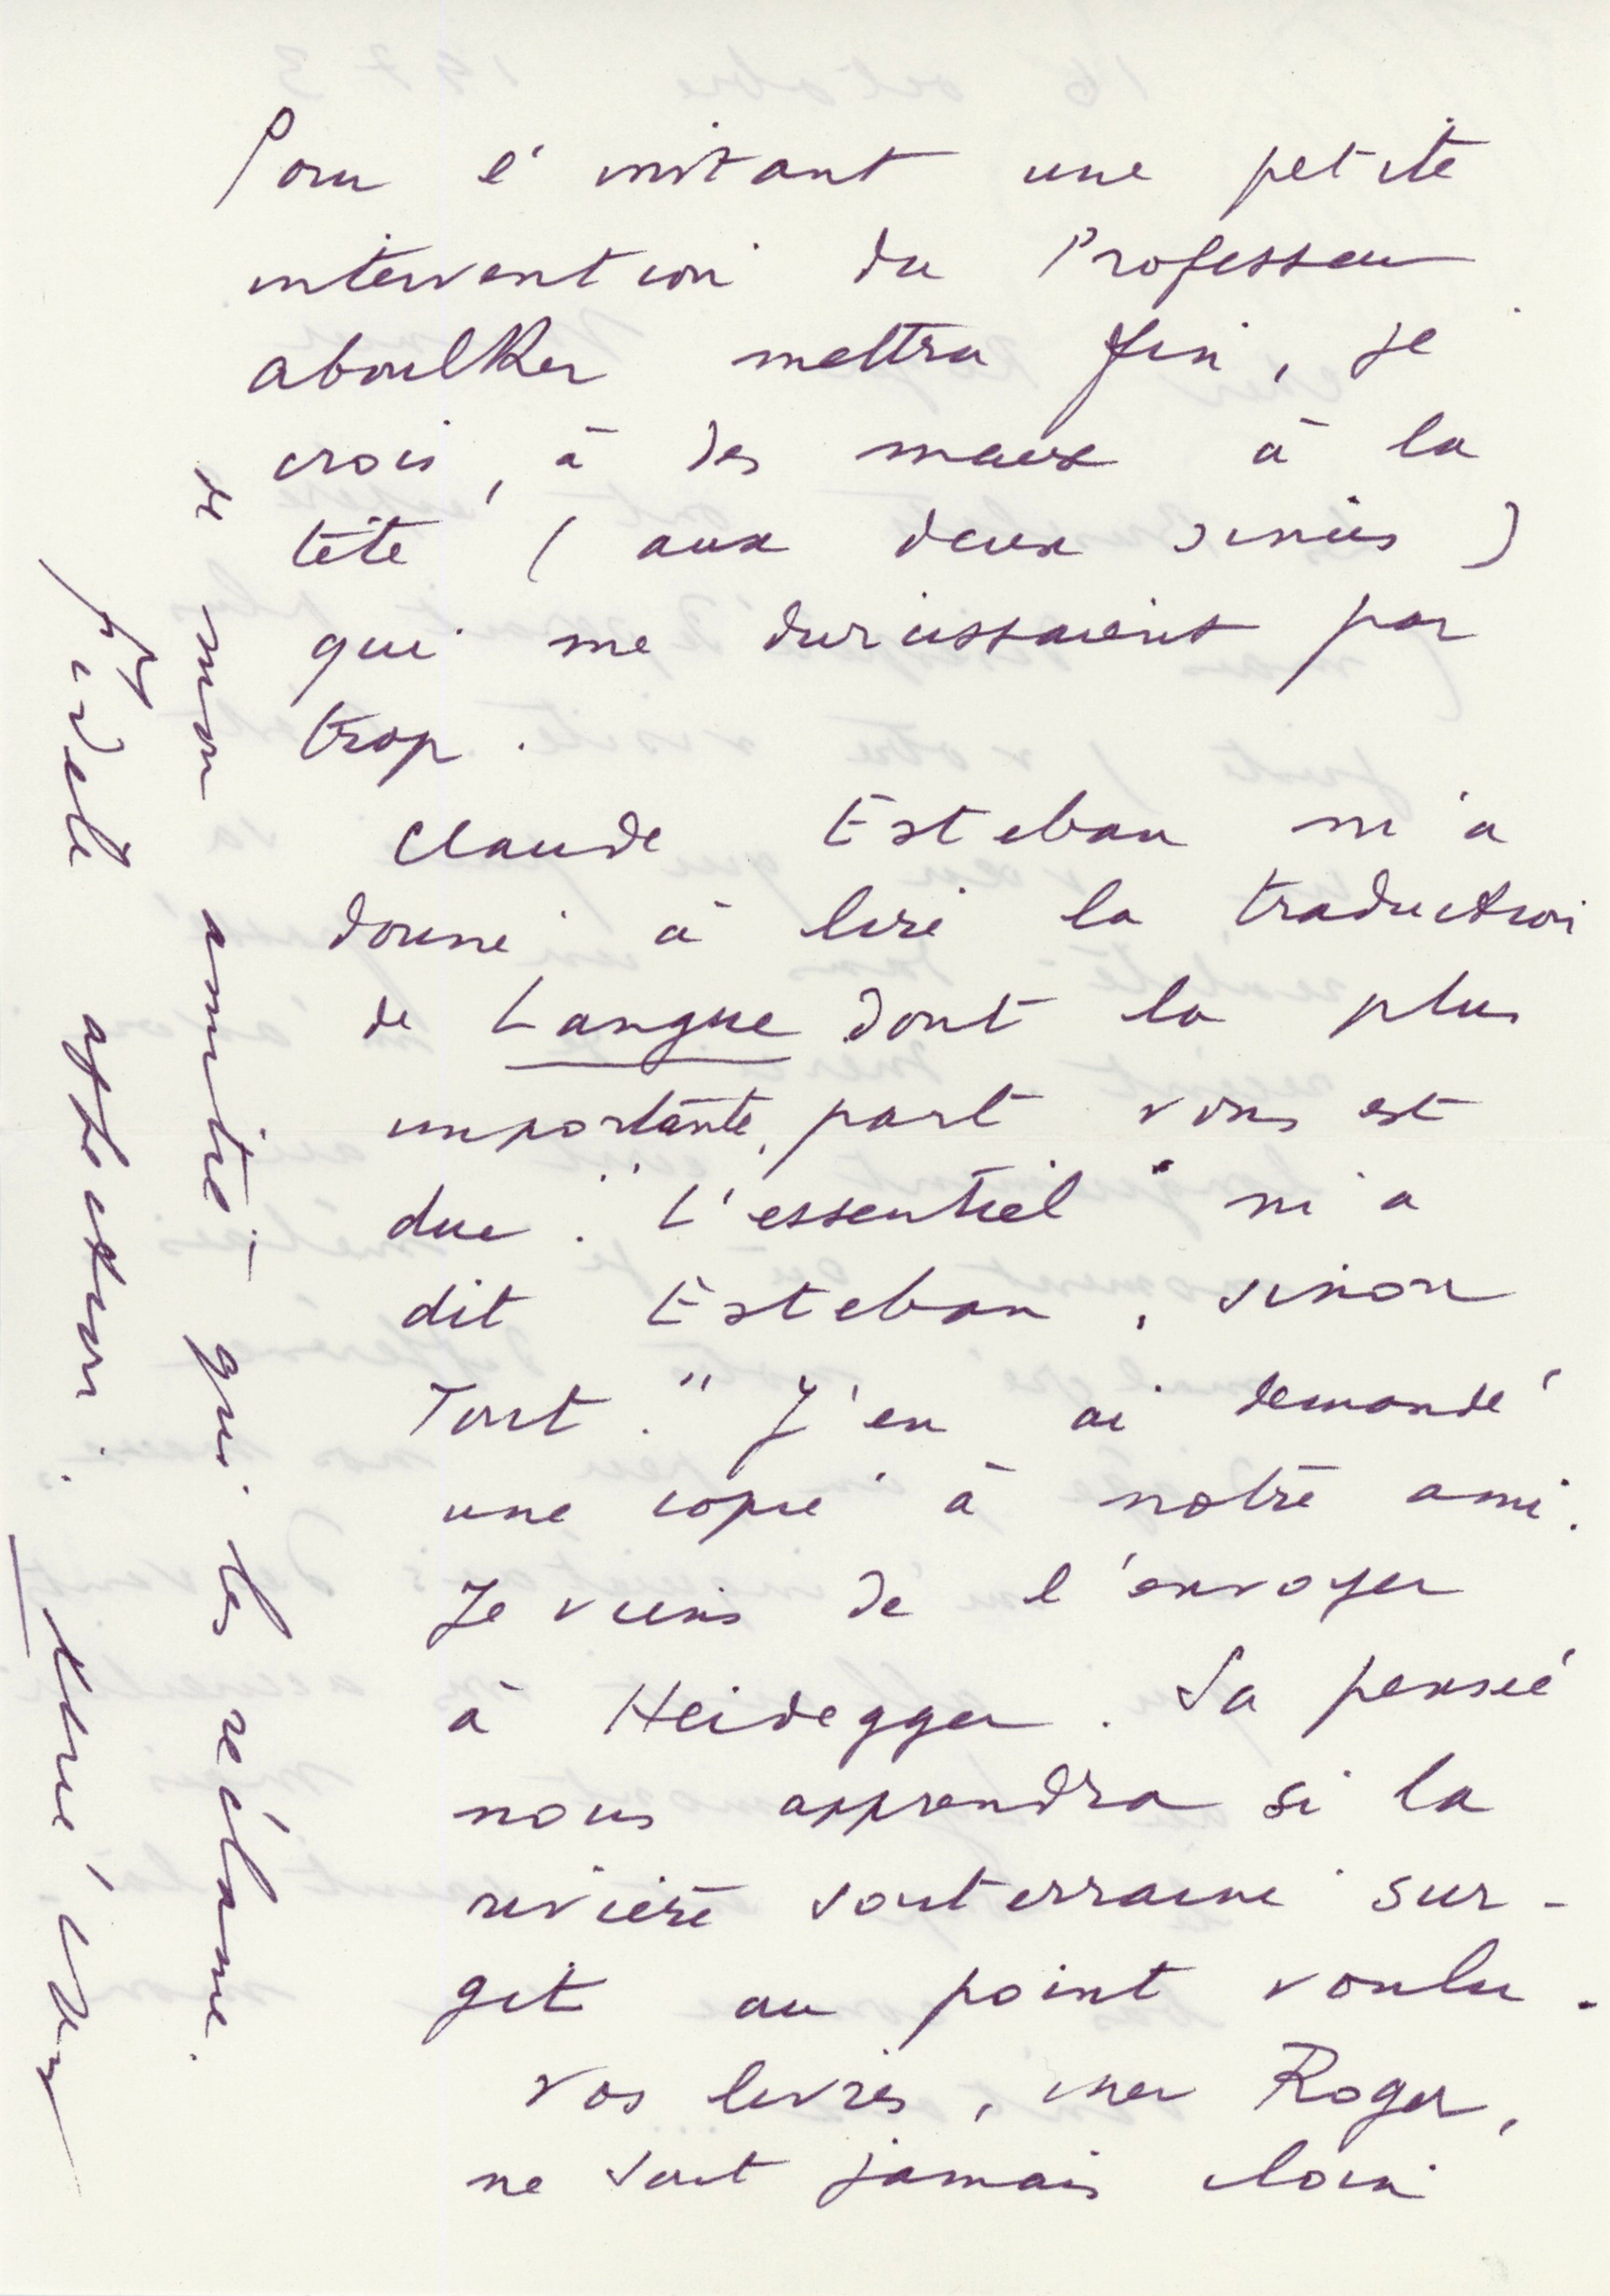 Pour l'instant une petite
intervention du Professeur
Aboulker mettra fin, je
crois, à des maux à la
tête (aux deux sinus)
qui me durcissaient par
trop.
Claude Esteban m'a
donné à lire la traduction
de Langue dont la plus
importante part vous est
due. "L'essentiel" m'a
dit Esteban, sinon
Tout." J'en ai demandé
une copie à notre ami.
Je viens de l'envoyer
à Heidegger. Sa pensée
nous apprendra si la
rivière souterraine sur-
git au point voulu.
Vos livres, cher Roger,
ne sont jamais loin
de mon amitié qui les réclame.
fidèle affection.
René Char